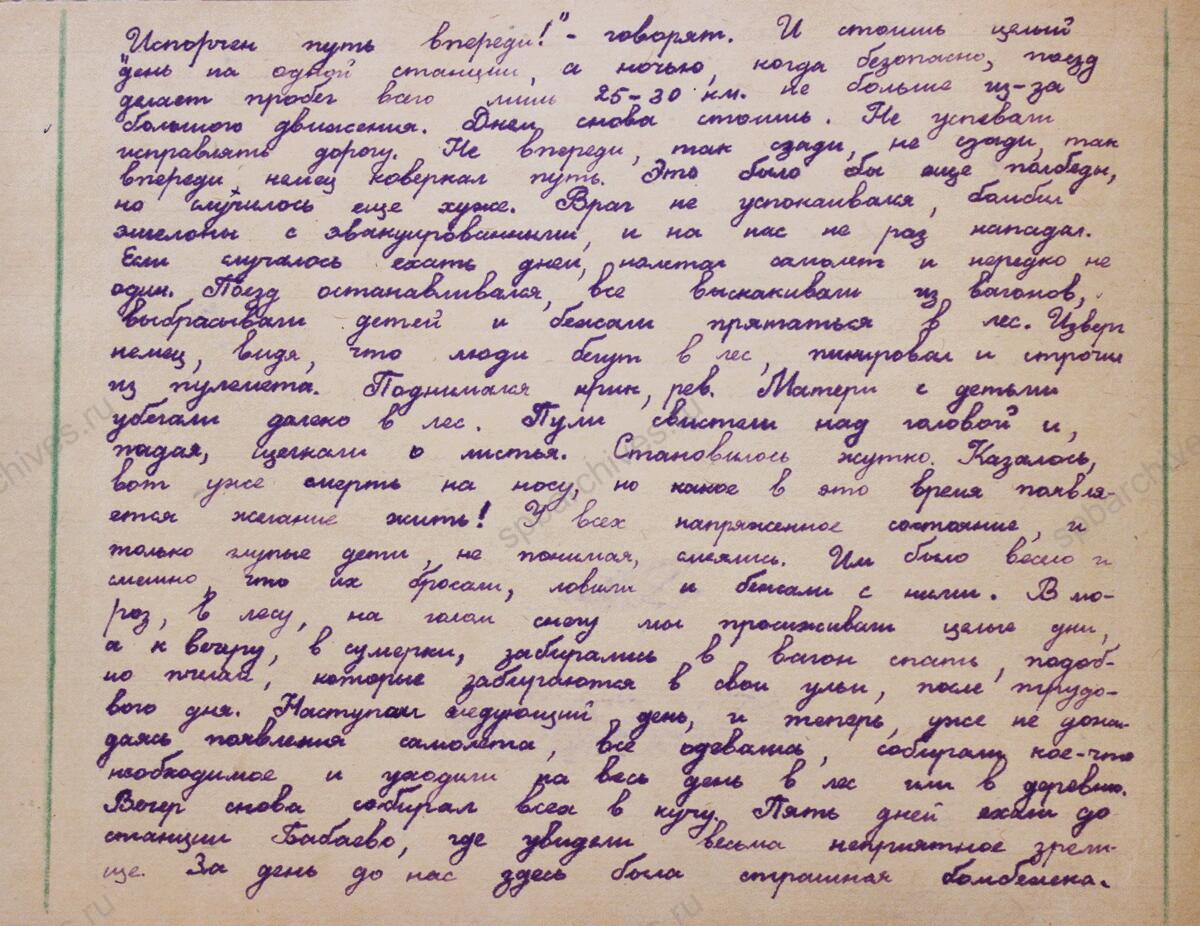 "Испорчен путь впереди!" - говорят. И стоишь целый
день на одной станции, а ночью, когда безопасно, поезд
делает пробег всего лишь 25-30 км. не больше из-за
большого движения. Днем снова стоишь. Не успевали
исправлять дорогу. Не впереди, так сзади, не сзади, так
впереди немец коверкал путь. Это было бы еще полбеды,
но случилось еще хуже. Враг не успокаивался, бомбил
эшелоны с эвакуированными, и на нас не раз нападал.
Если случалось ехать днем, налетал самолет и нередко не
один. Поезд останавливался, все выскакивали из вагонов,
выбрасывали детей и бежали прятаться в лес. Изверг
немец, видя, что люди бегут в лес, пикировал и строчил
из пулемета. Поднимался крик, рев. Матери с детьми
убегали далеко в лес. Пули свистели над головой и,
падая, щелкали о листья. Становилось жутко. Казалось,
вот уже смерть на носу, но какое в это время появля-
ется желание жить! У всех напряженное состояние, и
только глупые дети, не понимая, смеялись. Им было весело и
смешно, что их бросали, ловили и бежали с ними. В мо-
роз, в лесу, на голом снегу мы просиживали целые дни,
а к вечеру, в сумерки, забирались в вагон спать, подоб-
но пчелам, которые забираются в свои ульи, после трудо-
вого дня. Наступал следующий день, и теперь, уже не дожи-
даясь появления самолета, все одевались, собирали кое-что
необходимое и уходили на весь день в лес или в деревню.
Вечер снова собирал всех в кучу. Пять дней ехали до
станции Бабаево, где увидели весьма неприятное зрели-
ще. За день до нас здесь была страшная бомбежка.
spbarchives.ru